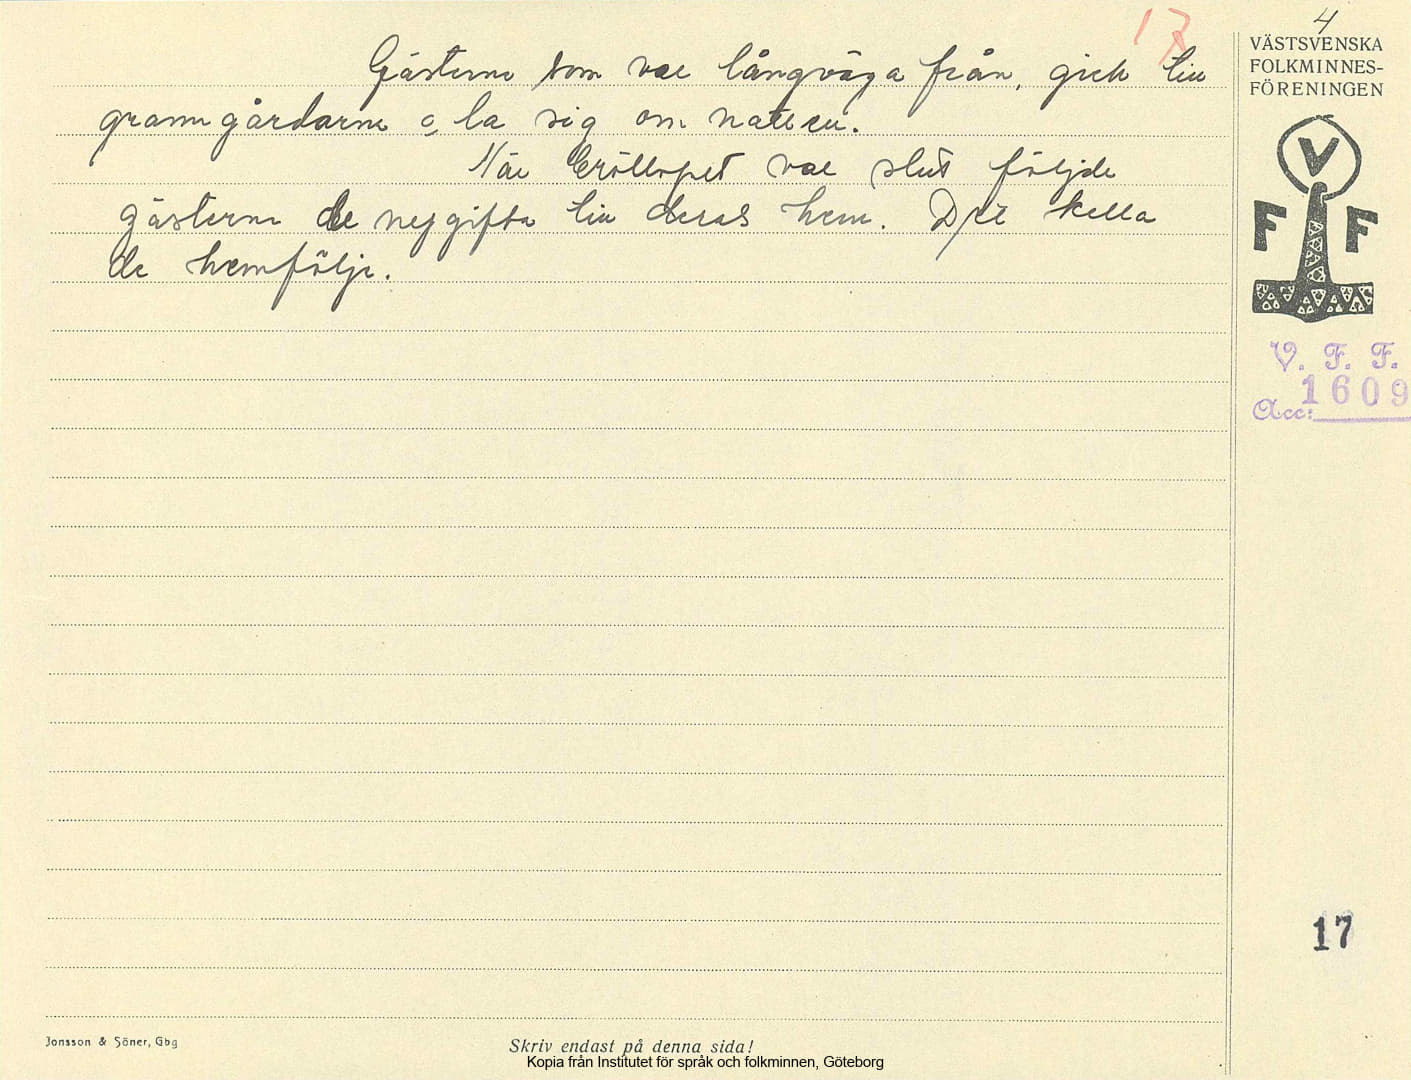 17
4
VÄSTSVENSKA
FOLKMINNES-
FÖRENINGEN
V
F F
V. F. F.
1609
Acc:
Gästerne som var långväga från, gick till
granngårdarne o, la sig om natten.
När bröllopet var slut följde
gästerne de nygifta till deras hem. Det kalla
de hemfölje.
17
Jonsson & Söner, Gbg
Skriv endast på denna sida!
Kopia från Institutet för språk och folkminnen, Göteborg